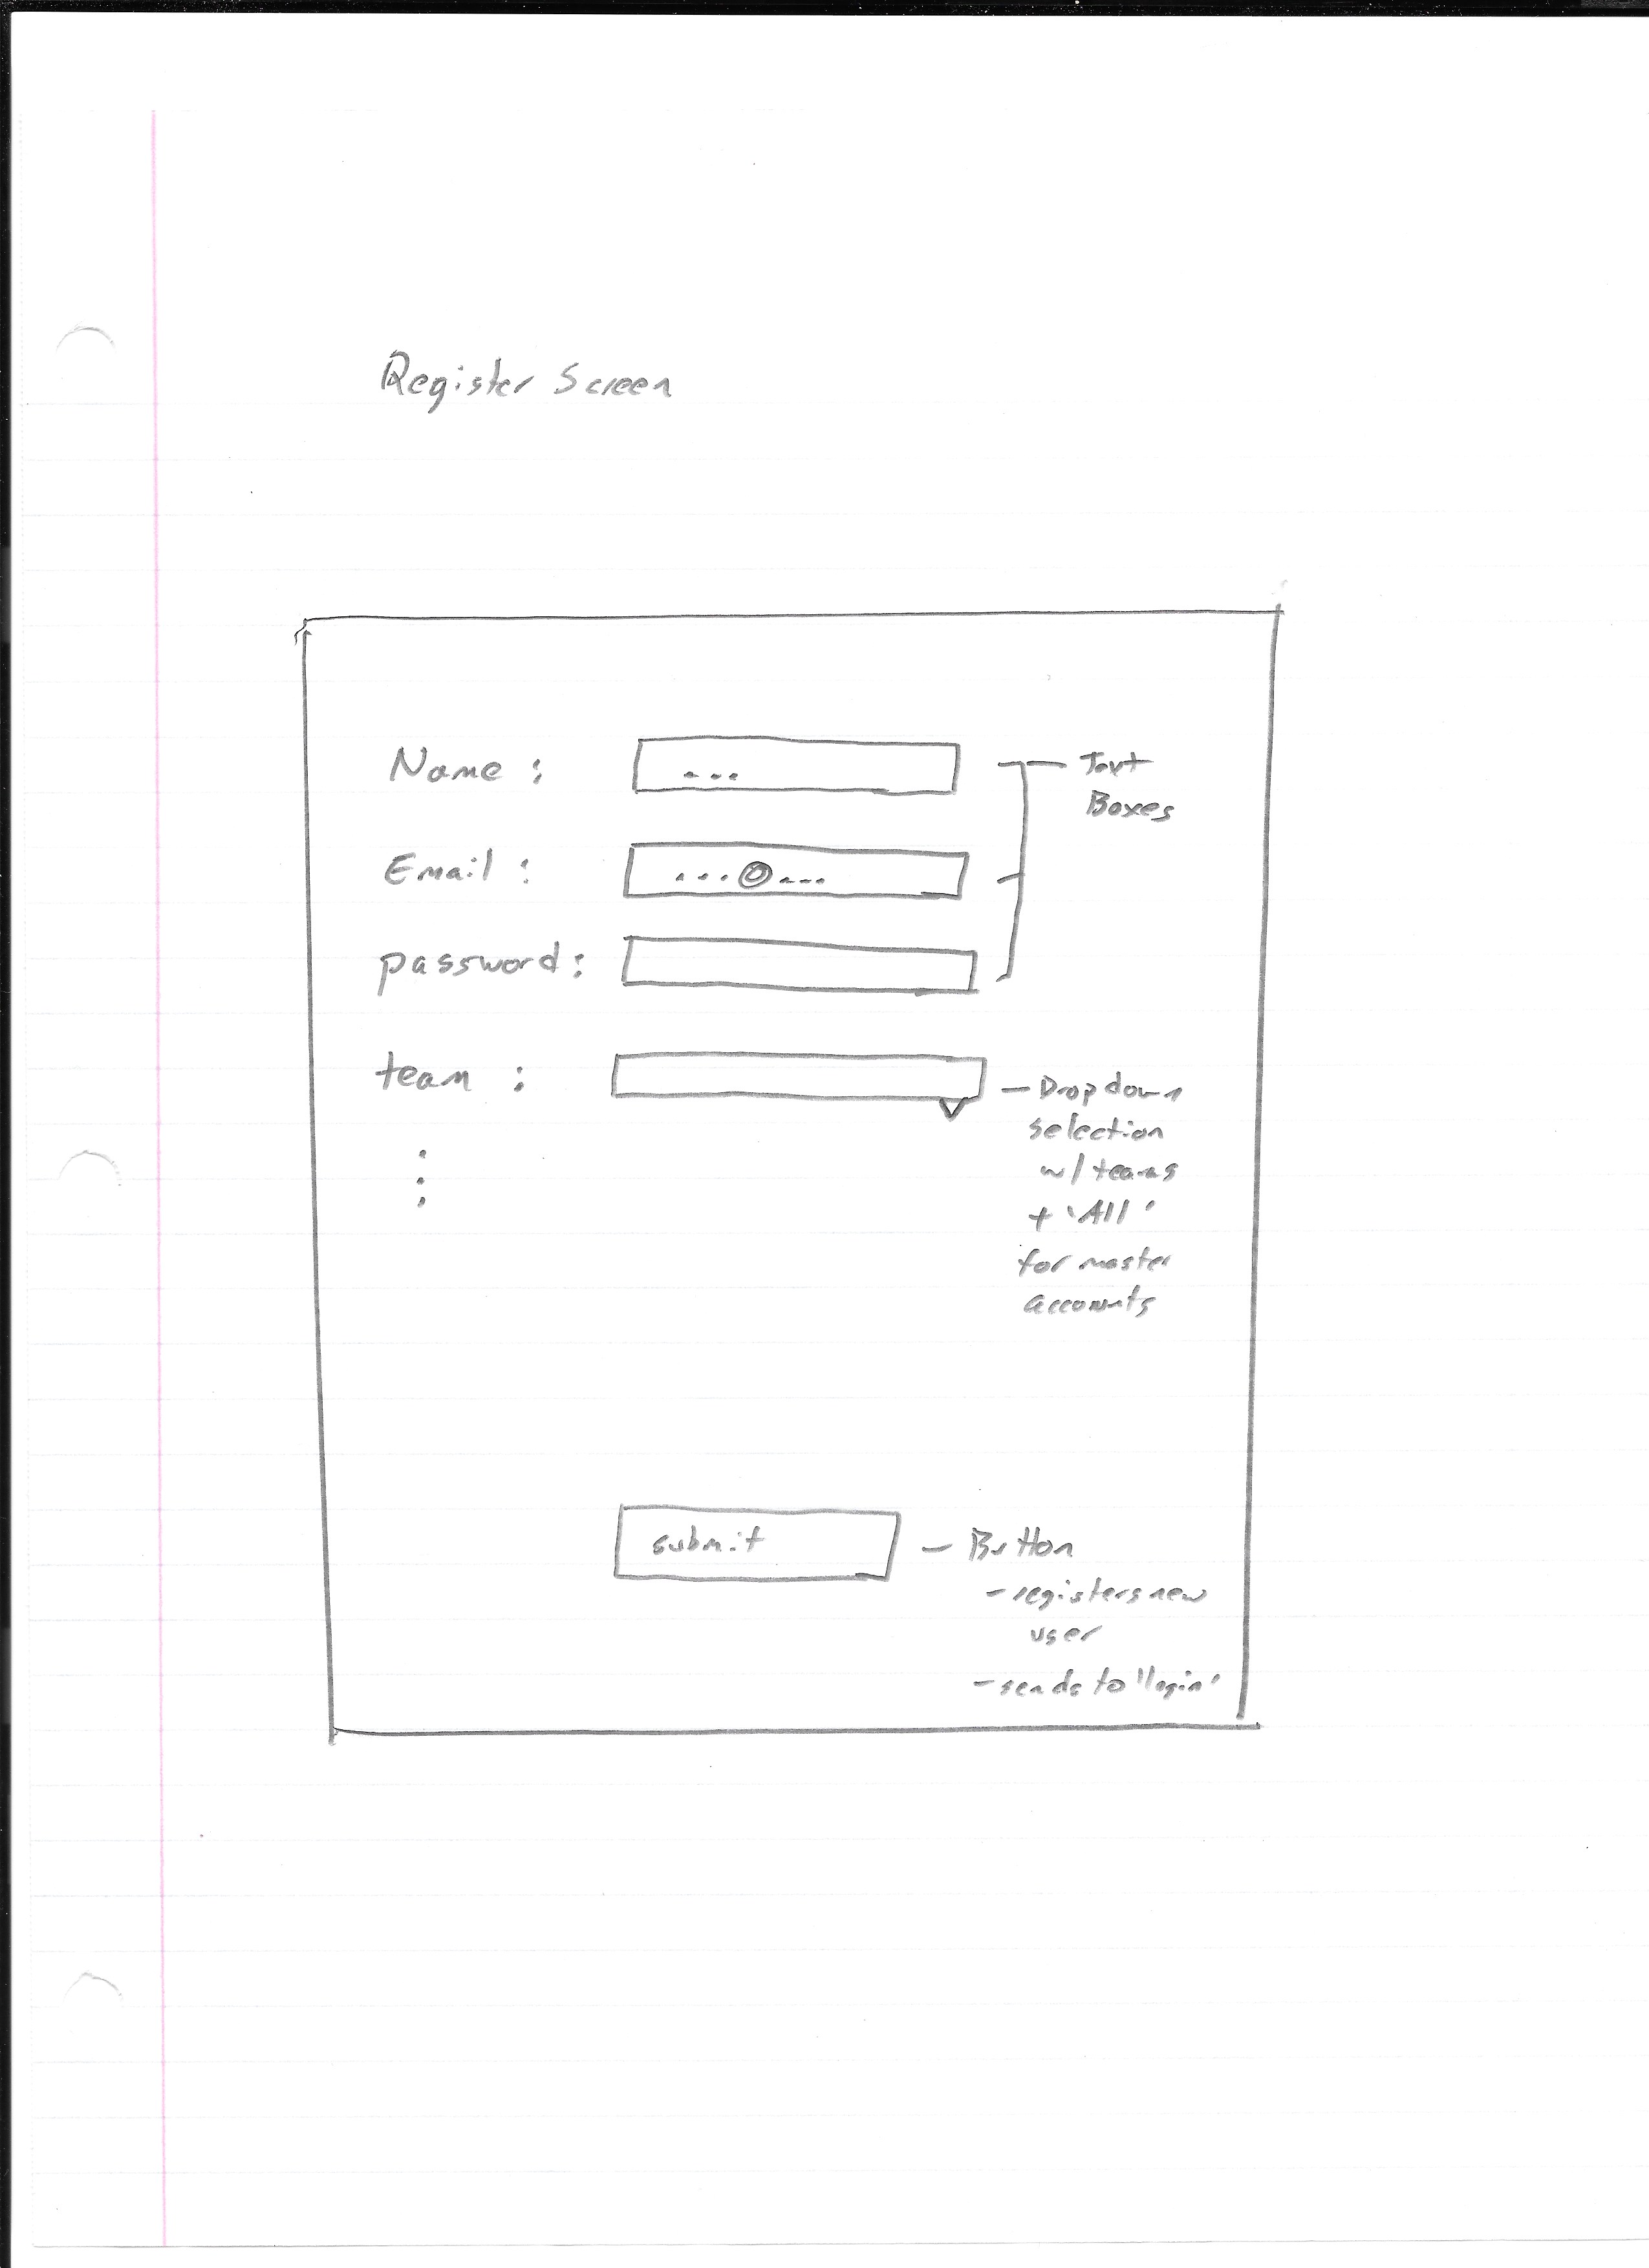 Register Screen
Name : ...
Text
Boxes
Email : ...@...
password:
team :
- Dropdown
selection
w/ teams
+ 'All'
for master
accounts
submit
- Button
- registers new
user
- sends to 'login'